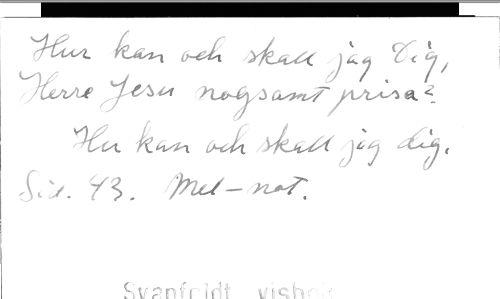 Hur kan och skall jag Dig,
Herre Jesu nogsamt prisa?
Hur kan och skall jag dig.
Sid. 43. Mel-not.
Svanfeldt visbok